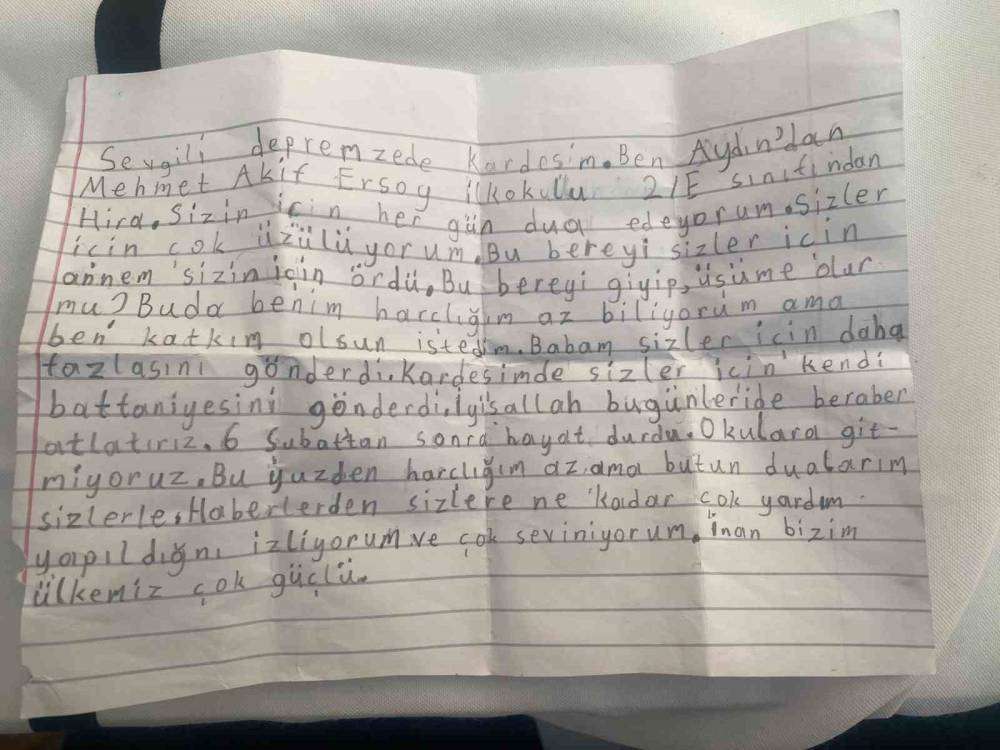 Sevgili depremzede kardesim. Ben Aydın'dan
Mehmet Akif Ersoy ilkokulu 2/E sınıfından
Hira. Sizin icin her gün dua edeyorum. Sizler
icin cok üzülüyorum. Bu bereyi sizler icin
annem sizin için ördü. Bu bereyi giyip, üşüme olur
mu? Buda benim harclığım az biliyorum ama
ben katkım olsun istedim. Babam sizler icin daha
fazlasını gönderdi. Kardesimde sizler icin kendi
battaniyesini gönderdi. İyişallah bugünleride beraber
atlatırız. 6 Şubattan sonra hayat durdu. Okulara git-
miyoruz. Bu yüzden harclığım az ama butun dualarım
sizlerle. Haberlerden sizlere ne kadar çok yardım
yapıldığnı izliyorum ve çok seviniyorum. İnan bizim
ülkemiz çok güçlü.